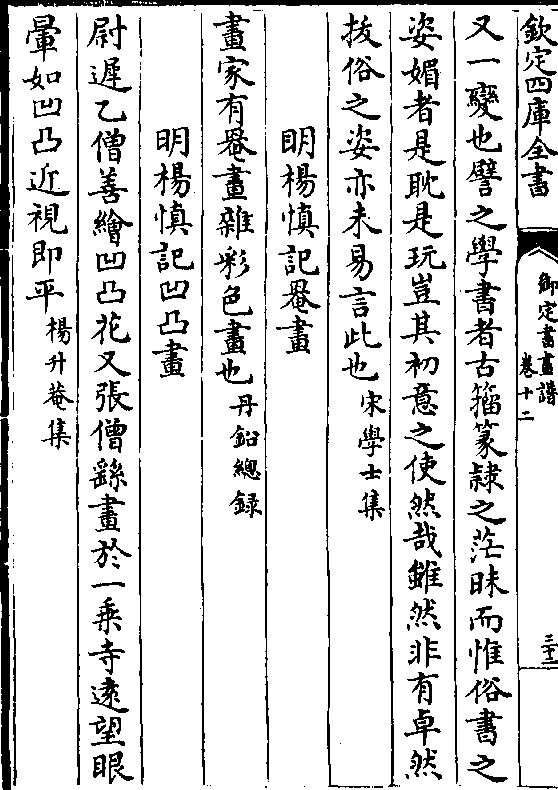 欽定四庫全書
御定書畫譜
卷十二
三十二
又一變也譬之學書者古籀篆隷之茫昧而惟俗書之
姿媚者是耽是玩豈其初意之使然哉雖然非有卓然
拔俗之姿亦未易言此也宋學士集
明楊慎記罨畫
畫家有罨畫雜彩色畫也丹鉛總録
明楊慎記凹凸畫
尉遲乙僧善繪凹凸花又張僧繇畫於一乗寺逺望眼
暈如凹凸近視即平楊升菴集